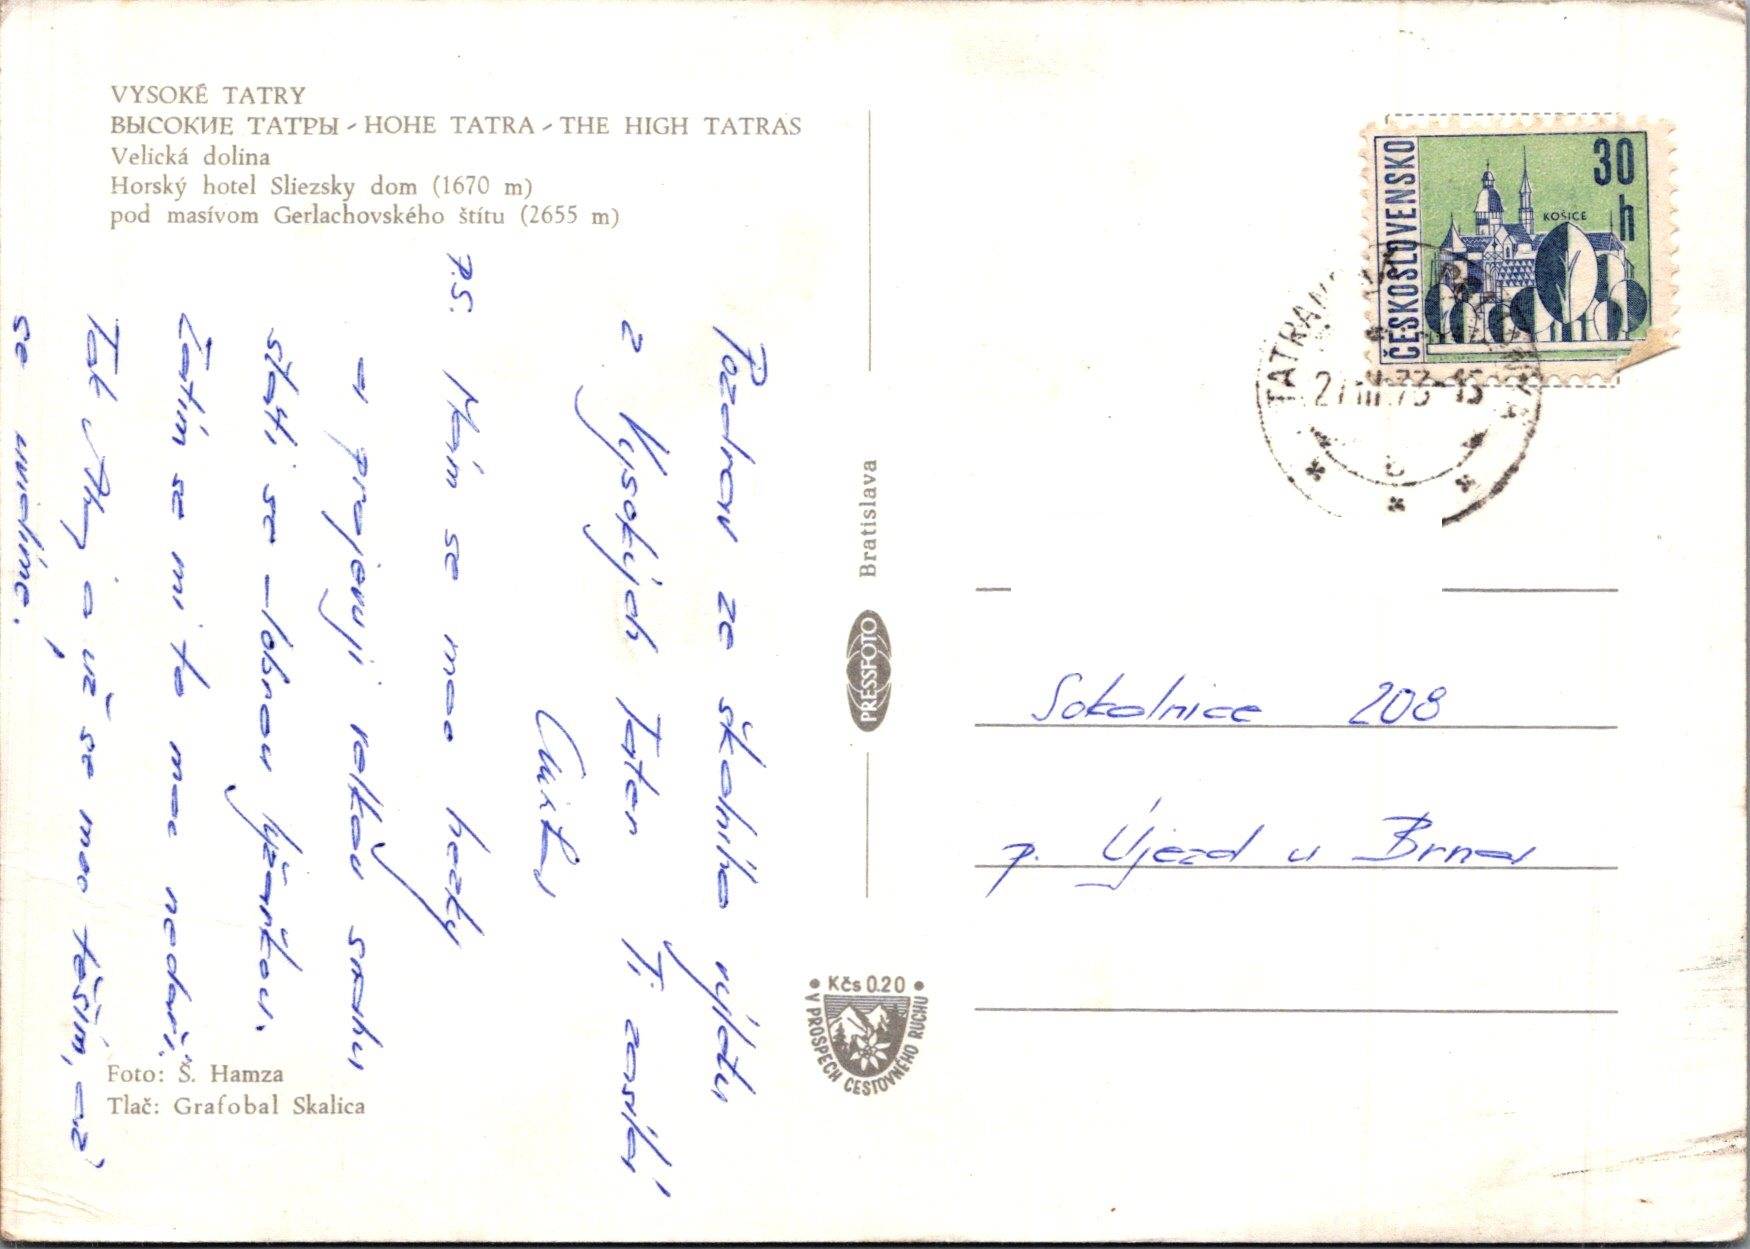 VYSOKÉ TATRY
ВЫСОКИЕ ТАТРЫ - HOHE TATRA - THE HIGH TATRAS
Velická dolina
Horský hotel Sliezsky dom (1670 m)
pod masívom Gerlachovského štítu (2655 m)
Pozdrav ze školního výletu
z Vysokých Tater Ti zasílá
P.S. Mám se moc hezky
a projevuji velkou snahu
stati se dobrou lyžařkou.
Zatím se mi to moc nedaří.
Tak Ahoj a už se moc těším, až
se uvidíme.
Foto: Š. Hamza
Tlač: Grafobal Skalica
Bratislava
PRESSFOTO
Kčs 0.20
V PROSPECH CESTOVNÉHO RUCHU
ČESKOSLOVENSKO
30 h
KOŠICE
TATRANSKÁ
73-15
Sokolnice 208
p. Újezd u Brna